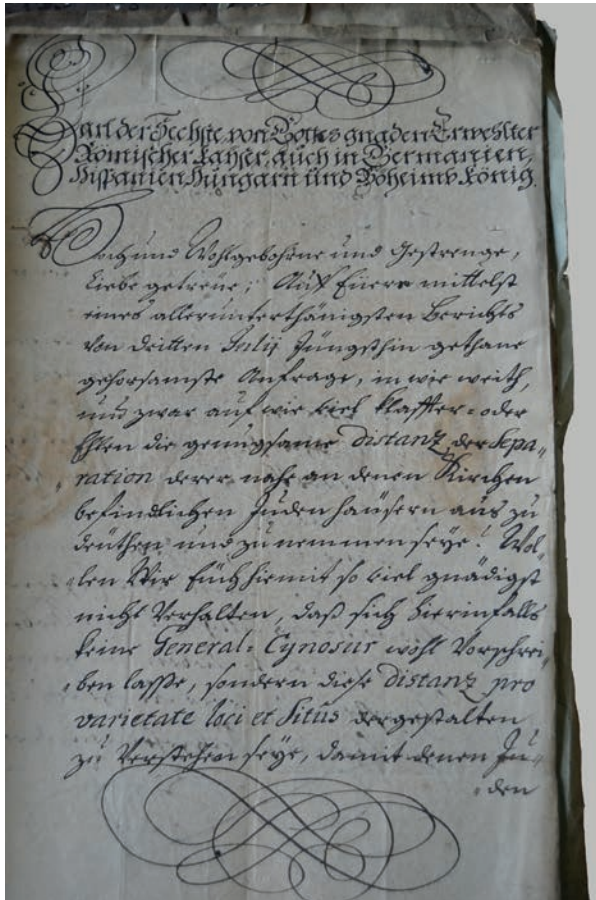 Carl der Sechste von Gottes gnaden Erwehlter
Römischer Kayser, auch in Germanien,
Hispanien, Hungarn und Böheimb König.
Hoch und Wohlgebohrne und Gestrenge,
Liebe getreue; Auf Euern mittelst
eines allerunterthänigsten Berichts
von dritten Julij Jüngsthin gethane
gehorsamste Anfrage, in wie weith,
und zwar auf wie viel Klaffter- oder
Ehlen die genugsame distanz der Sepa„
„ration derer nahe an denen Kirchen
befindlichen Judenhäusern aus zu
deuthen und zu nemmen seye? Wol„
„len Wir Euch hiemit so viel gnädigst
nicht Verhalten, daß sich hierinfalls
keine General-Cynosur wohl Vorschrei„
„ben lasse, sondern diese distanz pro
varietate loci et Situs dergestalten
zu Verstehen seye, damit denen Ju„
„den